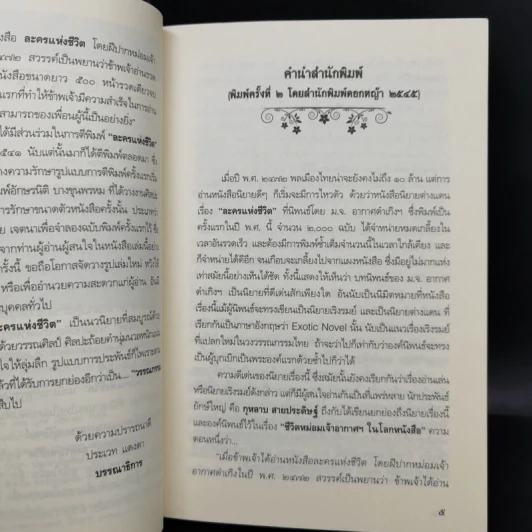 ังสือ ละครแห่งชีวิต โดยฝีปากหม่อมเจ้า
๒๔๗๒ สวรรค์เป็นพยานว่าข้าพเจ้าอ่านรวด
หนังสือขนาดยาว ๕๐๐ หน้ารวดเดียวจบ
แรกที่ทำให้ข้าพเจ้ามีความสำเร็จในการอ่าน
สามารถของเพื่อนผู้นี้เป็นอย่างยิ่ง"
ได้มีส่วนร่วมในการตีพิมพ์ "ละครแห่งชีวิต"
๒๕๔๑ นับแต่นั้นมาก็ได้ตีพิมพ์ตลอดมา
งความรักษารูปแบบการตีพิมพ์ครั้งแรกใน
พิมพ์อักษรนิติ บางขุนพรหม ที่ได้วางงานศิลปะ
การรักษาขนาดตัวหนังสือครั้งนั้น ประเภทว่า
เจตนาเพื่อจำลองฉบับพิมพ์ครั้งแรกไว้
จากท่านผู้อ่านผู้สนใจในหนังสือเล่มนี้อย่าง
ครั้งนี้ ขอถือโอกาสจัดวางรูปเล่มใหม่ หวังให้
หรือเพื่ออำนวยความสะดวกแก่ผู้อ่าน อันมี
บุคคลทั่วไป
ละครแห่งชีวิต" เป็นนวนิยายที่สมบูรณ์ด้วย
ด้วยวรรณศิลป์ ศิลปะถ้อยคำนุ่มนวลหนักแน่น
ให้ลุ่มลึก รูปแบบการประพันธ์ก็ไพเราะ
ล้วที่ได้รับการยกย่องอีกว่าเป็น... "วรรณกรรม
สืบไป
ด้วยความปรารถนาดี
ประเวท แดงดา
บรรณาธิการ
คำนำสำนักพิมพ์
(พิมพ์ครั้งที่ ๒ โดยสำนักพิมพ์ดอกหญ้า ๒๕๔๕)
เมื่อปี พ.ศ. ๒๔๗๒ พลเมืองไทยน่าจะยังคงไม่ถึง ๑๐ ล้าน แต่การ
อ่านหนังสือนิยายดีๆ ก็เริ่มจะมีการไหวตัว ด้วยว่าหนังสือนิยายต่างแดน
เรื่อง "ละครแห่งชีวิต" ที่นิพนธ์โดย ม.จ. อากาศดำเกิงฯ ซึ่งพิมพ์เป็น
ครั้งแรกในปี พ.ศ. นี้ จำนวน ๒,๐๐๐ ฉบับ ได้จำหน่ายหมดเกลี้ยงใน
เวลาอันรวดเร็ว และต้องมีการพิมพ์ซ้ำเต็มจำนวนนี้ในเวลาใกล้เคียง และ
ก็จำหน่ายได้ดีอีก จนเกือบจะเกลี้ยงไปจากแผงหนังสือ ซึ่งมีอยู่ไม่มากแห่ง
เท่าสมัยนี้อย่างเห็นได้ชัด ทั้งนี้แสดงให้เห็นว่า บทนิพนธ์ของ ม.จ. อากาศ
ดำเกิงฯ เป็นนิยายที่ดีเด่นสักเพียงใด อันนับเป็นนิมิตหมายที่หนังสือ
เรื่องนี้แม้ผู้นิพนธ์จะทรงเขียนเป็นนิยายเริงรมย์ และเป็นนิยายต่างแดน ที่
เรียกกันเป็นภาษาอังกฤษว่า Exotic Novel นั้น นับเป็นแนวเรื่องเริงรมย์
ที่แปลกใหม่ในวงวรรณกรรมไทย ถ้าจะว่าไปก็เท่ากับว่าองค์นิพนธ์จะทรง
เป็นผู้บุกเบิกเป็นพระองค์แรกด้วยซ้ำไปก็ว่าได้
ความดีเด่นของนิยายเรื่องนี้ ซึ่งสมัยนั้นยังคงเรียกกันว่าเรื่องอ่านเล่น
หรือนิยายเริงรมย์ดังกล่าว แต่ก็มีผู้สนใจอ่านกันเป็นที่แพร่หลาย นักประพันธ์
ยักษ์ใหญ่ คือ กุหลาบ สายประดิษฐ์ ถึงกับได้เขียนยกย่องถึงนิยายเรื่องนี้
และองค์นิพนธ์ไว้ในเรื่อง "ชีวิตหม่อมเจ้าอากาศฯ ในโลกหนังสือ" ความ
ตอนหนึ่งว่า...
"เมื่อข้าพเจ้าได้อ่านหนังสือละครแห่งชีวิต โดยฝีปากหม่อมเจ้า
อากาศดำเกิงในปี พ.ศ. ๒๔๗๒ สวรรค์เป็นพยานว่า ข้าพเจ้าได้อ่าน
๕